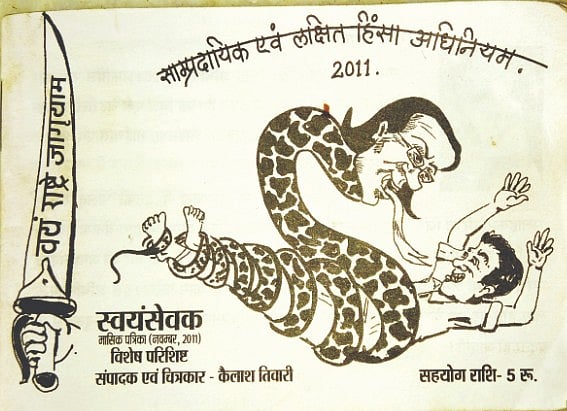 साम्प्रदायिक एवं लक्षित हिंसा अधिनियम.
2011.
वयं राष्ट्रे जागृयाम
स्वयंसेवक
मासिक पत्रिका (नवम्बर, 2011)
विशेष परिशिष्ट
संपादक एवं चित्रकार - कैलाश तिवारी
सहयोग राशि- 5 रू.